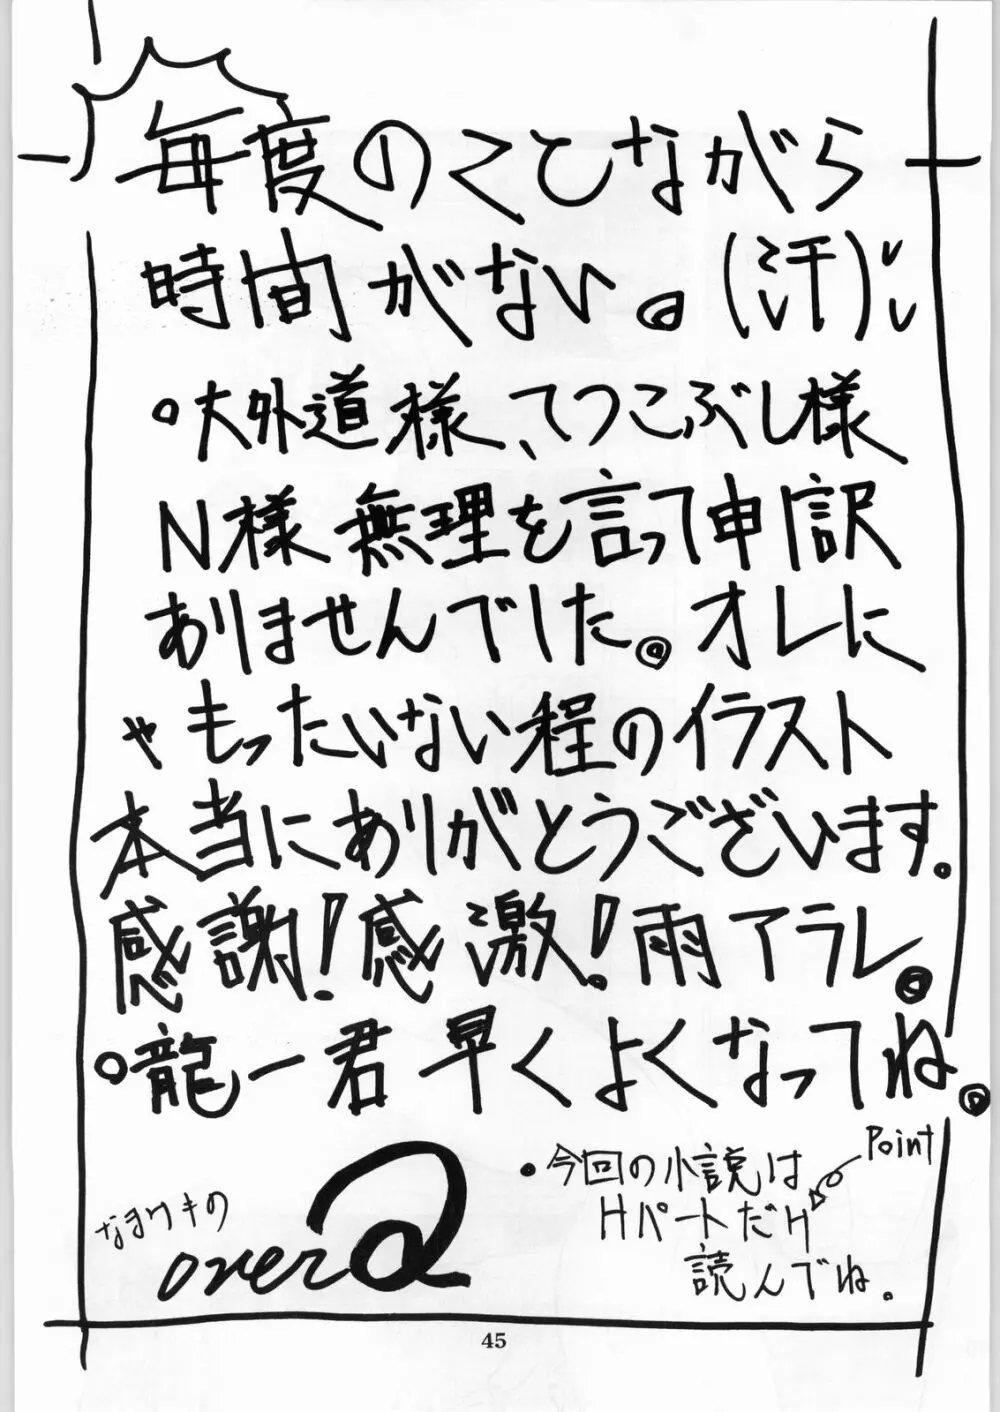 毎度のことながら
時間がない。(汗)
○大外道様、てつこぶし様
N様 無理を言って申し訳
ありませんでした。オレにゃ
もったいない程のイラスト
本当にありがとうございます。
感謝!感激!雨アラレ。
○龍一君 早くよくなってね。
over Q
・今回の小説は
Hパートだけ
読んでね。
Point
45